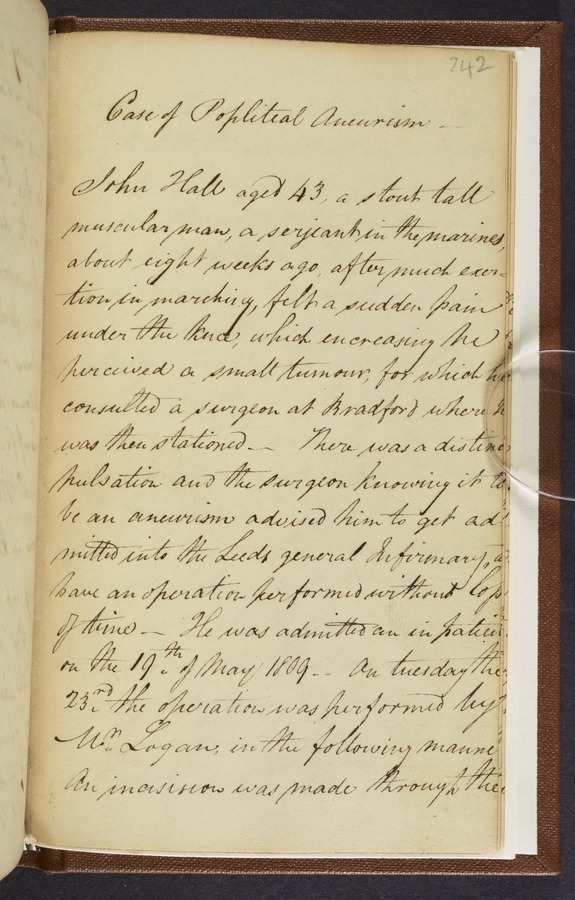 242
Case of Popliteal Aneurism —
John Hall aged 43, a stout tall
muscular man, a serjeant in the marines,
about eight weeks ago, after much exer=
tion in marching, felt a sudden pain
under the knee, which encreasing he
perceived a small tumour, for which he
consulted a surgeon at Bradford where h
was then stationed — There was a distinc
pulsation and the surgeon knowing it to
be an aneurism advised him to get ad
mitted into the Leeds general Infirmary, a
have an operation performed without loss
of time — He was admitted an in patien
on the 19th of May 1809 — On tuesday the
23rd the operation was performed by
Mr. Logan, in the following manne
An incisision was made through the